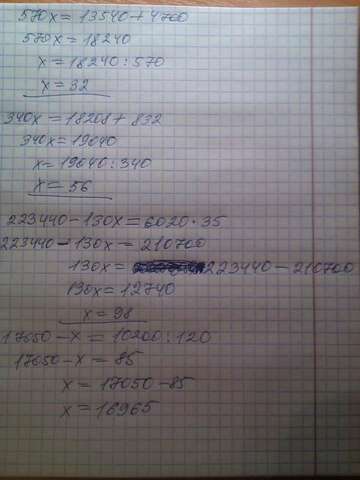 570x = 13540 + 4700
570x = 18240
x = 18240 : 570
x = 32
340x = 18208 + 832
340x = 19040
x = 19040 : 340
x = 56
223440 - 130x = 6020 · 35
223440 - 130x = 210700
130x = 223440 - 210700
130x = 12740
x = 98
17050 - x = 10200 : 120
17050 - x = 85
x = 17050 - 85
x = 16965